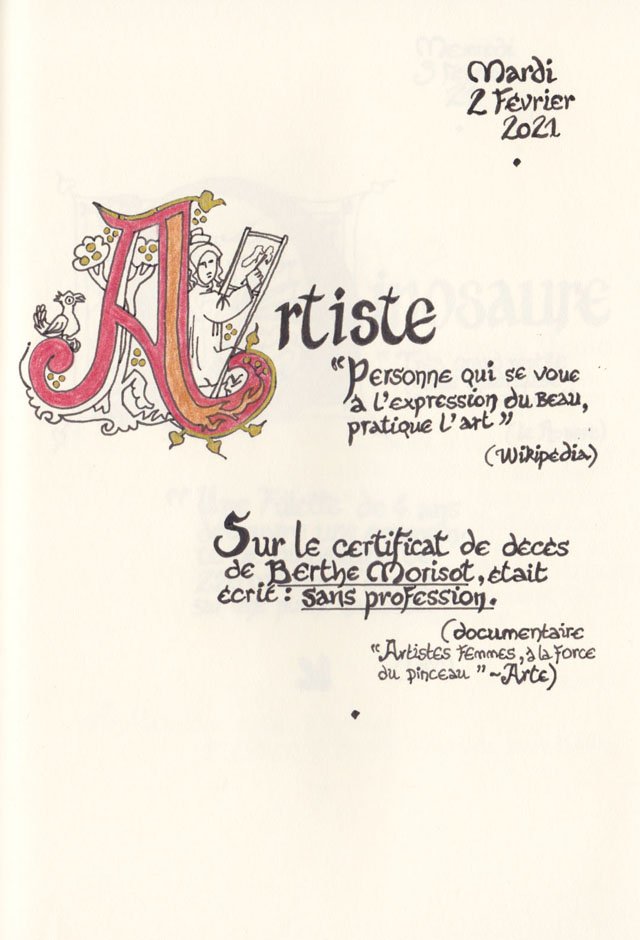 Mardi
2 Février
2021
Artiste
"Personne qui se voue
à l'expression du Beau,
pratique l'art"
(Wikipédia)
Sur le certificat de décès
de Berthe Morisot, était
écrit : sans profession.
(documentaire
"Artistes Femmes, à la force
du pinceau" ~ Arte)